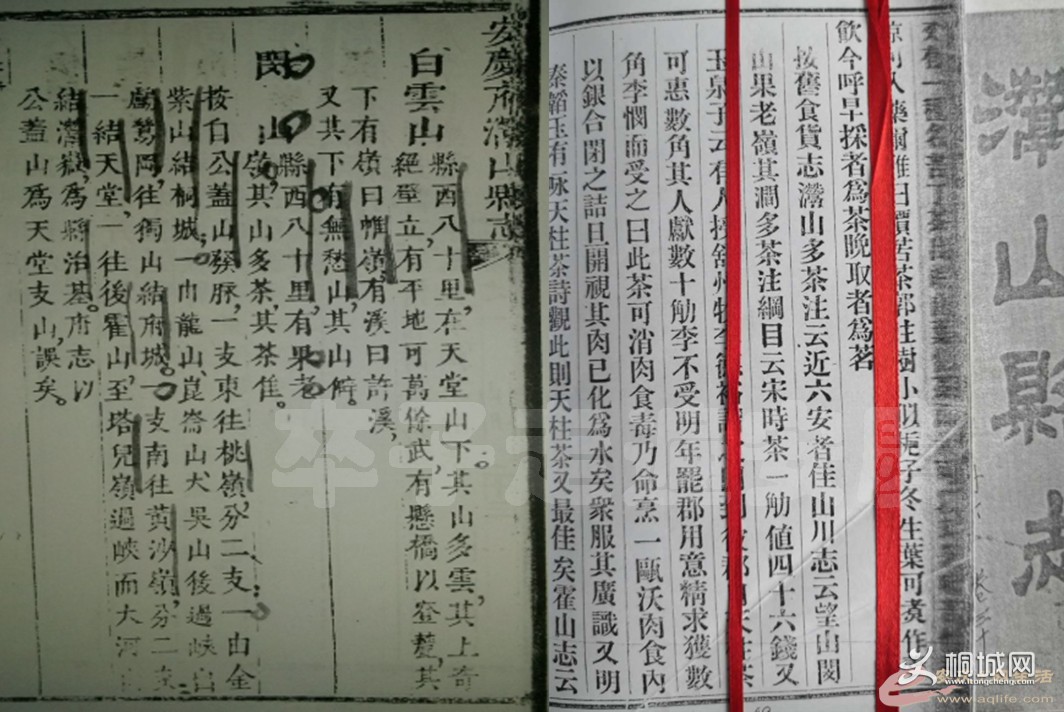 安慶府潛山縣志
白雲山 縣西八十里,在天堂山下。其山多雲,其上奇
絕壁立,有平地可萬餘武,有懸橋以登,其
下有嶺曰帷嶺,有溪曰許溪,
又其下有無愁山,其山僻。
閔山 縣西八十里,有果老
嶺,其山多茶,其茶佳。
按白公蓋山發脉,一支東往桃嶺,分二支,一由金
紫山結桐城,一由龍山崑崙山犬吳山後過峽
岡,往獨山結府城。一支南往黃沙嶺,分二支
一結天堂,一往後霍山,至塔兒嶺過峽而大河
結潛嶽,爲縣治基。府志以
公蓋山爲天堂支山,誤矣。
潛山縣志
爾雅曰檟苦茶郭注樹小似梔子冬生葉可煑作
飲今呼早採者爲茶晚取者爲茗
按舊食貨志潛山多茶注云近六安者佳山川志云望山閔
山果老嶺其澗多茶注綱目云宋時茶一觔値四十六錢又
玉泉子云有人授舒州牧李
可惠數角其人獻數十觔李不受明年罷郡用意精求獲數
角李憫而受之曰此茶可消肉食毒乃命烹一甌沃肉食內
以銀合閉之詰旦開視其肉已化爲水矣衆服其廣識又明
秦韜玉有咏天柱茶詩觀此則天柱茶又最佳矣霍山志云
桐城网
www.itongcheng.com
www.aqlife.com